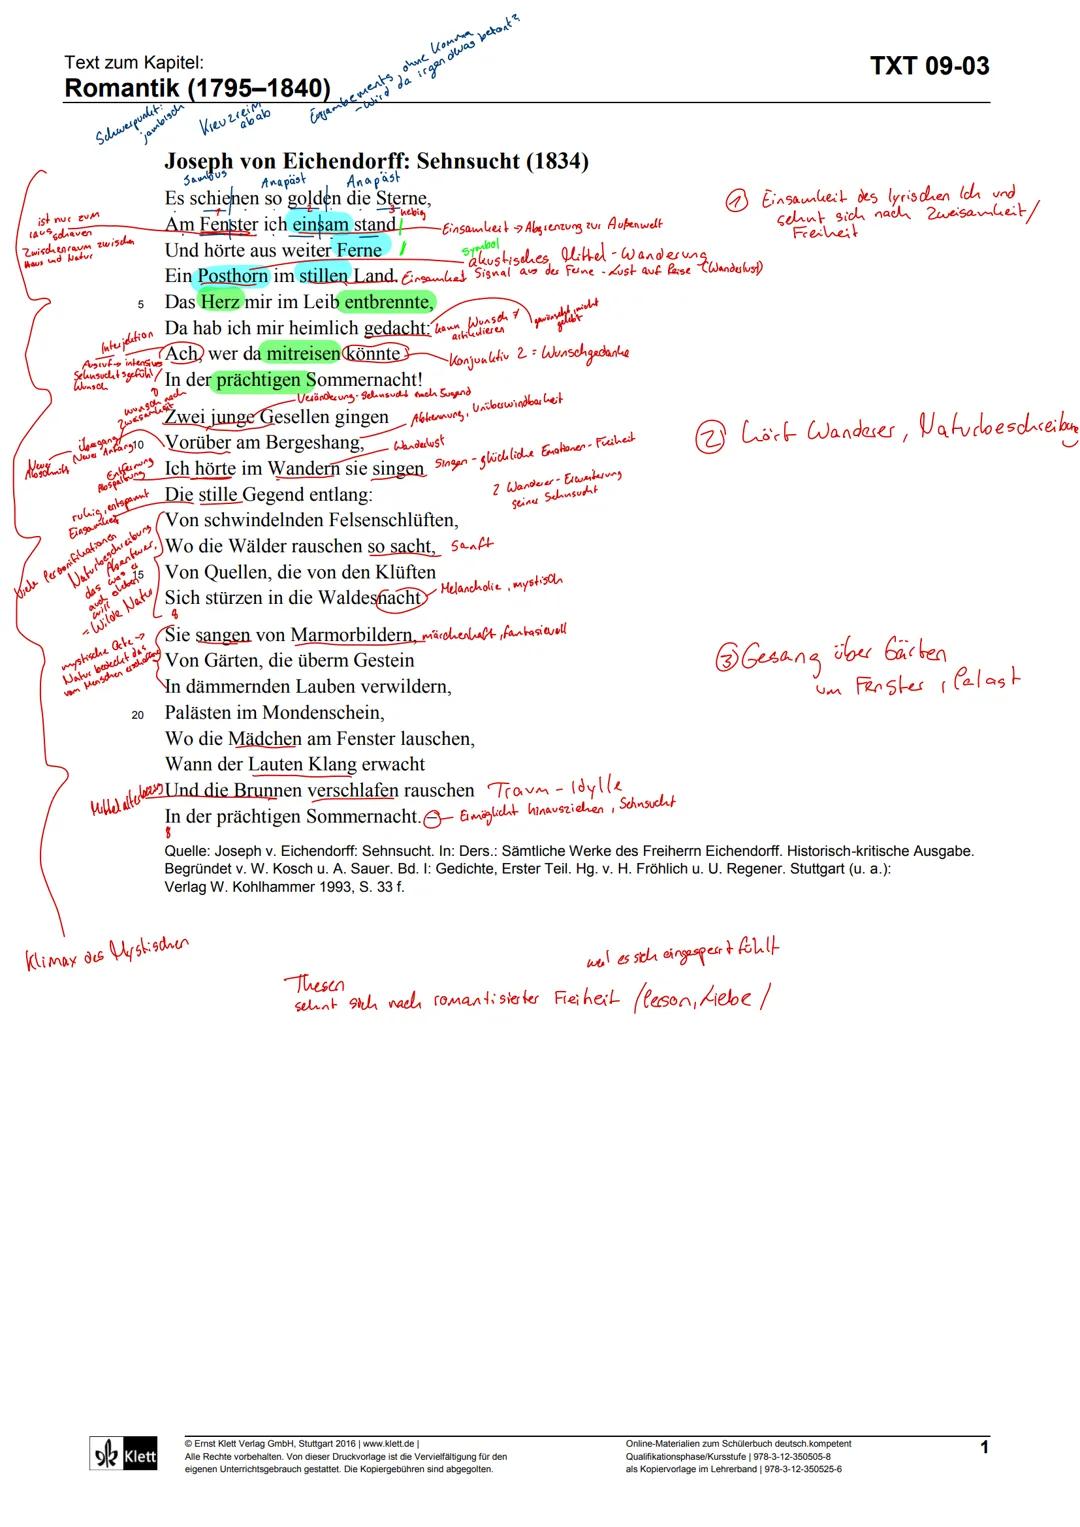 Text zum Kapitel:
Romantik (1795–1840)
TXT 09-03
Schwerpunkt:
jambisch
Kreuzreim
abab
Enjambements ohne Komma
- wird da irgendwas betont?
Joseph von Eichendorff: Sehnsucht (1834)
Jambus Anapäst Anapäst
Es schienen so golden die Sterne,
Am Fenster ich einsam stand
Und hörte aus weiter Ferne
Ein Posthorn im stillen Land.
5 Das Herz mir im Leib entbrennte,
Da hab ich mir heimlich gedacht:
Ach, wer da mitreisen könnte
In der prächtigen Sommernacht!
Zwei junge Gesellen gingen
10 Vorüber am Bergeshang,
Ich hörte im Wandern sie singen
Die stille Gegend entlang:
Von schwindelnden Felsenschlüften,
Wo die Wälder rauschen so sacht,
15 Von Quellen, die von den Klüften
Sich stürzen in die Waldesnacht
Sie sangen von Marmorbildern,
Von Gärten, die überm Gestein
In dämmernden Lauben verwildern,
20 Palästen im Mondenschein,
Wo die Mädchen am Fenster lauschen,
Wann der Lauten Klang erwacht
Und die Brunnen verschlafen rauschen
In der prächtigen Sommernacht. –
3 hebig
ist nur zum
rausschauen
Zwischenraum zwischen
Haus und Natur
Einsamkeit → Abgrenzung zur Außenwelt
Symbol
akustisches Mittel - Wanderung
Einsamkeit Signal aus der Ferne - Lust auf Reise (Wanderlust)
kann Wunsch
artikulieren
gewünscht, nicht
gelebt
Interjektion
Ausruf → intensives
Sehnsuchtsgefühl
Wunsch
Konjunktiv 2 = Wunschgedanke
Wunsch nach
Zweisamkeit
Veränderung - Sehnsucht nach Jugend
Abtrennung, Unüberwindbarkeit
Übergang
Neuer Anfang
Neuer
Abschnitt
Wanderlust
Entfernung
Abspaltung
Singen - glückliche Emotionen - Freiheit
2 Wanderer - Erweiterung
seiner Sehnsucht
ruhig, entspannt
Einsamkeit
viele Personifikationen
Naturbeschreibung
Abenteuer,
das was er
auch erleben
will
= Wilde Natur
Sanft
Melancholie, mystisch
8
mystische Orte →
Natur bedeckt das
vom Menschen erschaffene
märchenhaft, fantasievoll
Mittelalterbezug
Traum - Idylle
Ermöglicht hinausziehen, Sehnsucht
8
① Einsamkeit des lyrischen Ich und
sehnt sich nach Zweisamkeit/
Freiheit
② hört Wanderer, Naturbeschreibung
③ Gesang über Gärten
um Fenster, Palast
Quelle: Joseph v. Eichendorff: Sehnsucht. In: Ders.: Sämtliche Werke des Freiherrn Eichendorff. Historisch-kritische Ausgabe.
Begründet v. W. Kosch u. A. Sauer. Bd. I: Gedichte, Erster Teil. Hg. v. H. Fröhlich u. U. Regener. Stuttgart (u. a.):
Verlag W. Kohlhammer 1993, S. 33 f.
Klimax des Mystischen
weil es sich eingesperrt fühlt
Thesen
sehnt sich nach romantisierter Freiheit /Person, Liebe /
Klett
© Ernst Klett Verlag GmbH, Stuttgart 2016 | www.klett.de |
Alle Rechte vorbehalten. Von dieser Druckvorlage ist die Vervielfältigung für den
eigenen Unterrichtsgebrauch gestattet. Die Kopiergebühren sind abgegolten.
Online-Materialien zum Schülerbuch deutsch.kompetent
Qualifikationsphase/Kursstufe | 978-3-12-350505-8
als Kopiervorlage im Lehrerband | 978-3-12-350525-6
1